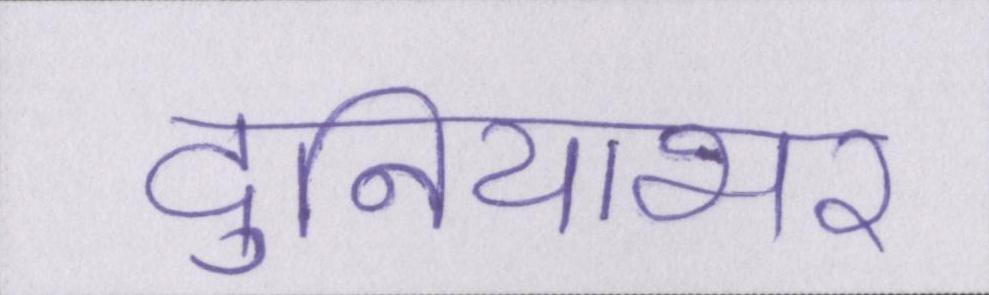 दुनियाभर